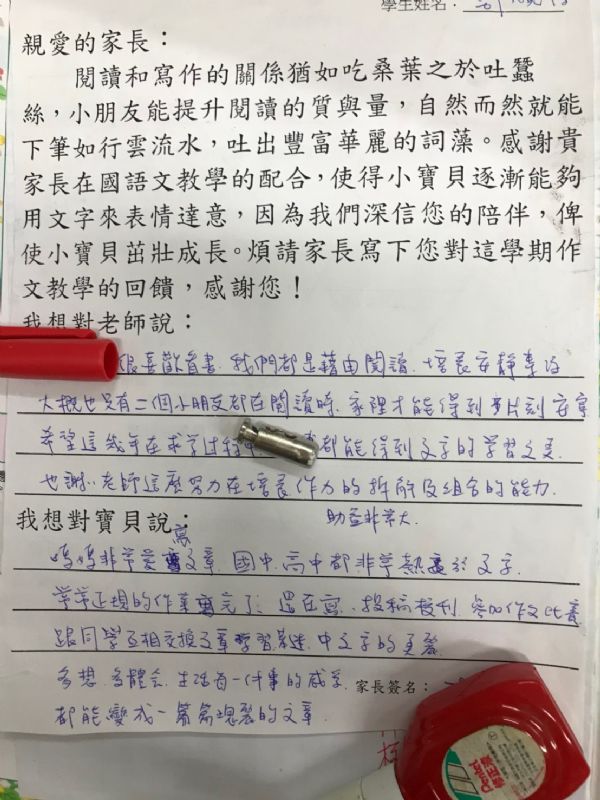 學生姓名：
親愛的家長：
閱讀和寫作的關係猶如吃桑葉之於吐蠶
絲，小朋友能提升閱讀的質與量，自然而然就能
下筆如行雲流水，吐出豐富華麗的詞藻。感謝貴
家長在國語文教學的配合，使得小寶貝逐漸能夠
用文字來表情達意，因為我們深信您的陪伴，俾
使小寶貝茁壯成長。煩請家長寫下您對這學期作
文教學的回饋，感謝您！
我想對老師說：
很喜歡看書.我們都是藉由閱讀.培長安靜專
大概也只有二個小朋友都在閱讀時.家裡才能得到片刻安寧
希望這幾年在求學过程中 都能得到文字的學習之美.
也謝謝老師這麼努力在培長作力的拆解及組合的能力.
助益非常大.
我想對寶貝說：
媽媽非常愛寫文章.國中.高中都非常熱衷於文字.
学業正規的作業寫完了.還在寫.投稿校刊.參加作文比賽
跟同學互相交換文章學習 中文字的美麗
多想.多體会.生活每一件事的感受.
家長簽名：
都能變成一篇篇瑰麗的文章.
Pentel